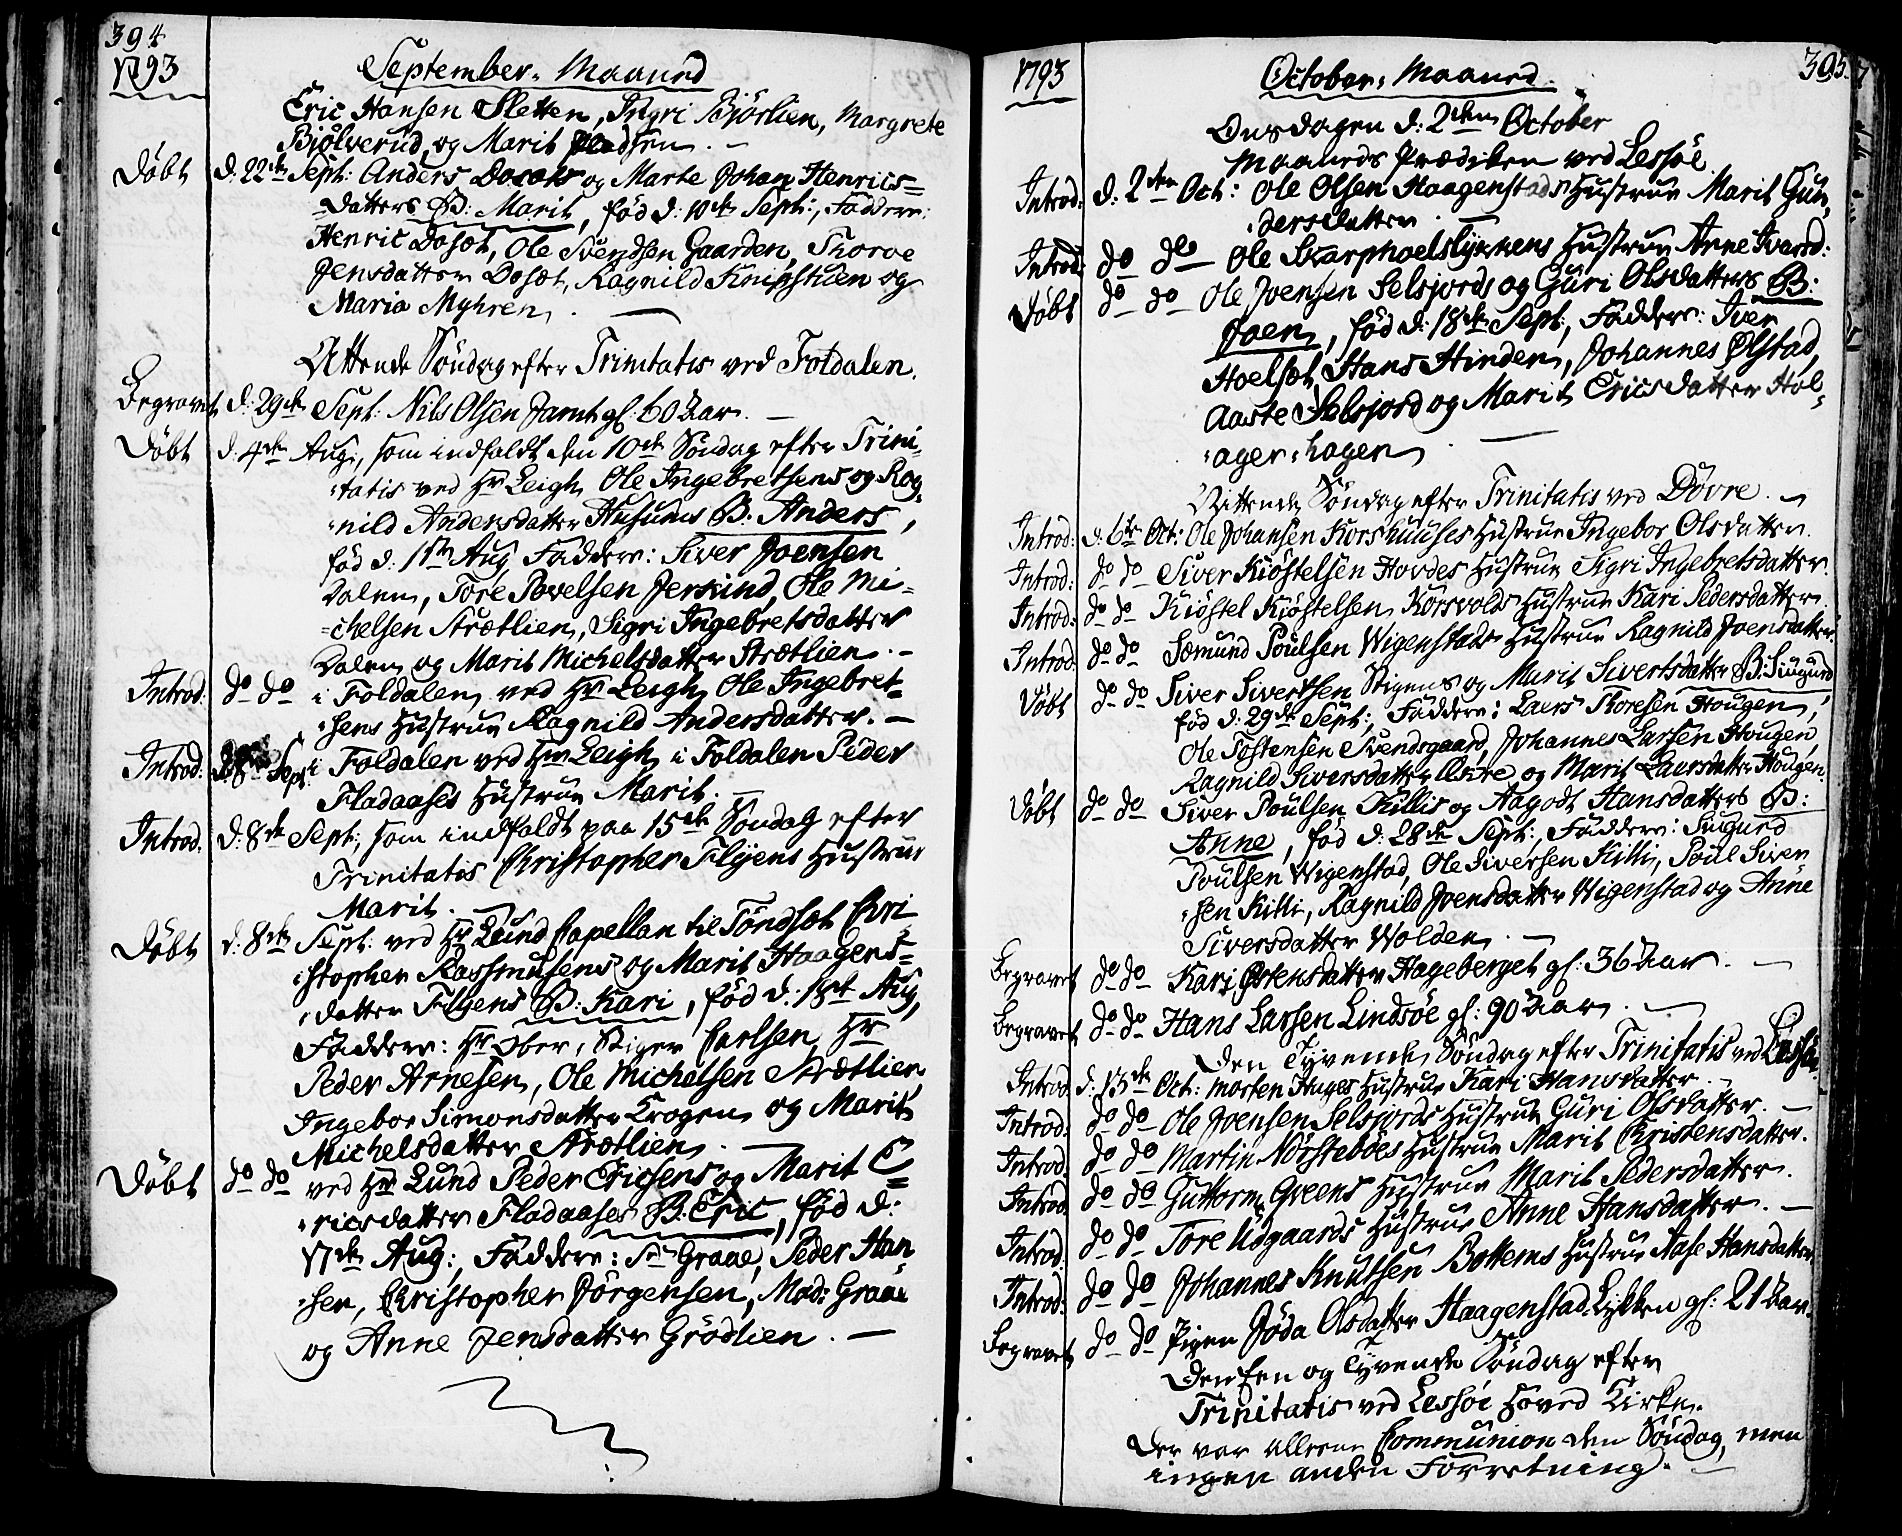 394
1793
September. Maaned
Eric Hansen Sletten, Ingri Bjórlien, Margrete
Bjólverud, og Marit Pladsen. -
Dóbt d. 22de Sept: Anders Dosæts og Marte Johan Henrics=
datters B: Marit, fód d: 10de Sept:, Faddere:
Henric Dosæt, Ole Svendsen Gaarden, Thorve
Jensdatter Dosæt, Ragnild Knipstuen og
Maria Myhren.
Attende Sóndag efter Trinitatis ved Foldalen.
Begravet d: 29de Sept. Nils Olsen Jamt gl: 60 Aar. -
Dóbt d. 4de Aug:, som indfaldt den 10de Sóndag efter Trini-
tatis ved Hr Leigh Ole Ingebretsens og Rag-
nild Andersdatter Husums B. Anders,
fód d. 1ste Aug Faddere: Siver Joensen
Dalen, Tore Povelsen Jerkind, Ole Mi-
chelsen Strætlien, Sigri Ingebretsdatter
Dalen og Marit Michelsdatter Strætlien. -
Introd: do do i Foldalen ved Hr Leigh Ole Ingebret-
sens Hustrue Ragnild Andersdatter. -
Introd: Sept: i Foldalen ved Hr Leigh i Foldalen Peder
Fladaases Hustrue Marit.
Introd. d: 8de Sept:, som indfaldt paa 15de Sóndag efter
Trinitatis Christopher Flyens Hustrue
Marit.
Dóbt d: 8de Sept: ved Hr Lund Capellan til Tóndset Chri-
stopher Rasmusens og Marit Haagens=
datter Flyens B: Kari, fód d: 18de Aug,
Faddere: Hr Ober, Stiger Carlsen, Hr
Peder Arnesen, Ole Michelsen Strætlien,
Ingebor Simonsdatter Krogen og Marit
Michelsdatter Strætlien.
Dóbt do do ved Hr Lund Peder Ericsens og Marit E=
ricsdatter Fladaases B: Eric, fód d:
17de Aug:, Faddere: Sr Graae, Peder Han-
sen, Christopher Jórgensen, Mad: Graae
og Anne Jensdatter Gródlien. -
1793
October. Maaned.
395.
Onsdagen d: 2den October
Maaneds Prædiken ved Lessóe.
Introd: d: 2den Oct: Ole Olsen Haagenstads Hustrue Marit Gun-
dersdatter
Introd: do do Ole Skarphoelslykkens Hustrue Anne Ivarsd:
Dóbt do do Ole Joensen Selsjords og Guri Olsdatters B:
Joen, fód d: 18de Sept:, Faddere: Iver
Hoelset, Hans Hinden, Johannes Ólstad,
Aaste Selsjord og Marit Ericsdatter Hol-
ager hagen
Nittende Sóndag efter Trinitatis ved Dóvre. -
Introd: d: 6te Oct: Ole Johansen Korshuuses Hustrue Ingebor Olsdatter.
Introd: do do Siver Kióstelsen Hovdes Hustrue Sigri Ingebretsdatter.
Introd: do do Kióstel Kióstelsen Korsvolds Hustrue Kari Pedersdatter
Introd: do do Sæmund Poulsen Wigenstads Hustrue Ragnild Joensdatter.
Dóbt do do Siver Sivertsen Stigens og Marit Sivertsdatter B: Siugurd
fód d: 29de Sept:, Faddere: Laers Thoresen Hougen,
Ole Tostensen Svendsgaard, Johannes Larsen Hougen,
Ragnild Siversdatter og Marit Laersdatter Hougen.
Dóbt do do Siver Poulsen Killis og Aagodt Hansdatters B:
Anne, fód d: 28de Sept:, Faddere: Sugurd
Poulsen Wigenstad, Ole Siversen Killi, Poul Siver-
sen Killi, Ragnild Joensdatter Wigenstad og Anne
Siversdatter Wolden. -
Begravet do do Kari Óstensdatter Hageberget gl: 36 Aar. -
Begravet do do Hans Larsen Lindsóe gl: 90 Aar. -
Den Tyvende Sóndag efter Trinitatis ved Lessóe
Introd d: 13de Oct: Morten Hages Hustrue Kari Hansdatter.
Introd: do do Ole Joensen Selsjords Hustrue Guri Olsdatter. -
Introd: do do Martin Nórstebóes Hustrue Marit Christensdatter.
Introd. do do Guttorm Greens Hustrue Marit Pedersdatter.
Introd do do Tore Udgaards Hustrue Anne Hansdatter. -
Introd: do do Johannes Knutsen Bottems Hustrue Aase Hansdatter
Begravet do do Pigen Jóda Olsdatter Haagenstad-Lykken gl: 21 Aar.
Den Een og Tyvende Sóndag efter
Trinitatis ved Lessóe Hoved Kirke.
Der var alleene Communion den Sóndag, men
ingen anden Forretning. -